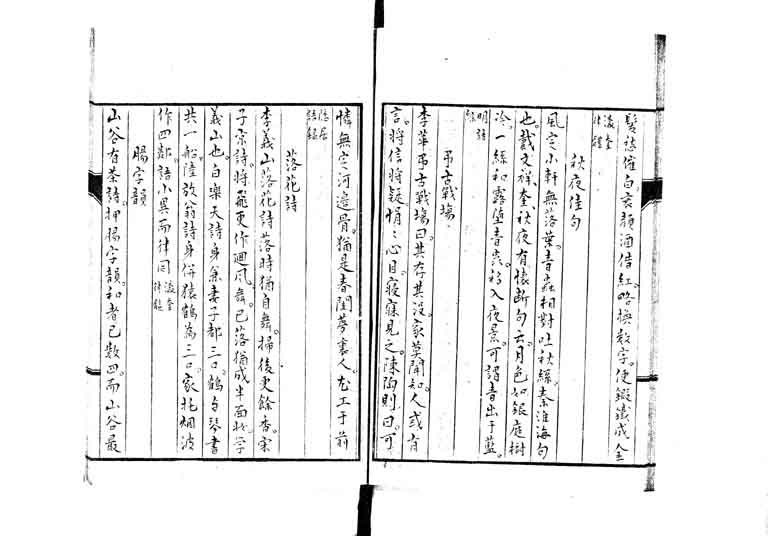 髮愁催白衰顏酒借紅略換數字便鍛鐵成金
瀛奎律髓
秋夜佳句
風定小軒無落葉青蟲相對吐秋絲秦淮海句
也戴文祥奎秋夜有懷斷句云月色如銀庭樹
冷一絲和露墮青蟲移入夜景可謂青出于藍
明詩綜
弔古戰場
李華弔古戰場曰其存其沒家莫聞知人或有
言將信將疑悁悁心目寢寐見之陳陶則曰可
憐無定河邊骨猶是春閨夢裏人尤工于前
隱居語錄
落花詩
李義山落花詩落時猶自舞掃後更餘香宋
子京詩將飛更作迴風舞已落猶成半面妝學
義山也白樂天詩身兼妻子都三口鶴與琴書
共一船陸放翁詩身併猿鶴為三口家托烟波
作四鄰語小異而律同瀛奎律髓
腸字韻
山谷有茶詩押腸字韻和者已數四而山谷最